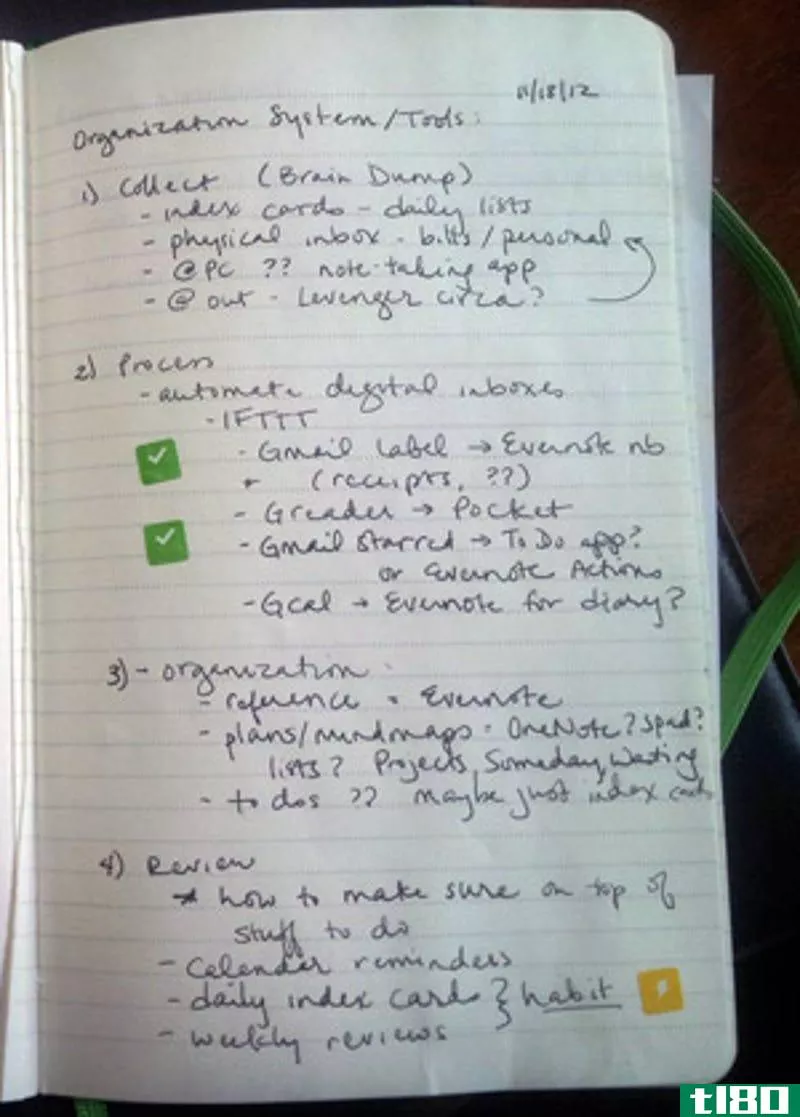 11/18/12
Organization System/Tools:
1) Collect (Brain Dump)
- index cards - daily lists
- physical inbox - bills/personal
- @PC ?? note-taking app
- @ out - Levenger circa?
2) Process
- automate digital inboxes
- IFTTT
- Gmail Label → Evernote nb
(receipts, ??)
- Greader → Pocket
- Gmail Starred → To Do app?
or Evernote Actions
- Gcal → Evernote for diary?
3) - organization
- reference - Evernote
- plans/mindmaps - OneNote? spad?
lists? Projects, Someday, Waiting
- to dos ?? maybe just index cards
4) Review
* how to make sure on top of
stuff to do
- Calendar reminders
- daily index cards } habit
- weekly reviews
tl80